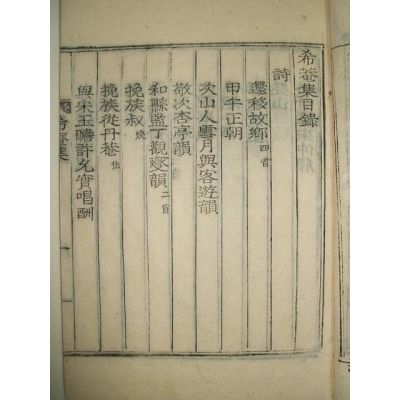 希菴集目錄
詩
還移故鄉 四首
甲午正朝
次山人雲月與客遊韻
敬次杏亭韻
和縣監丁觀韻 二首
挽族叔
挽族從丹菴
與宋玉瞻許允實唱酬
希菴集
一